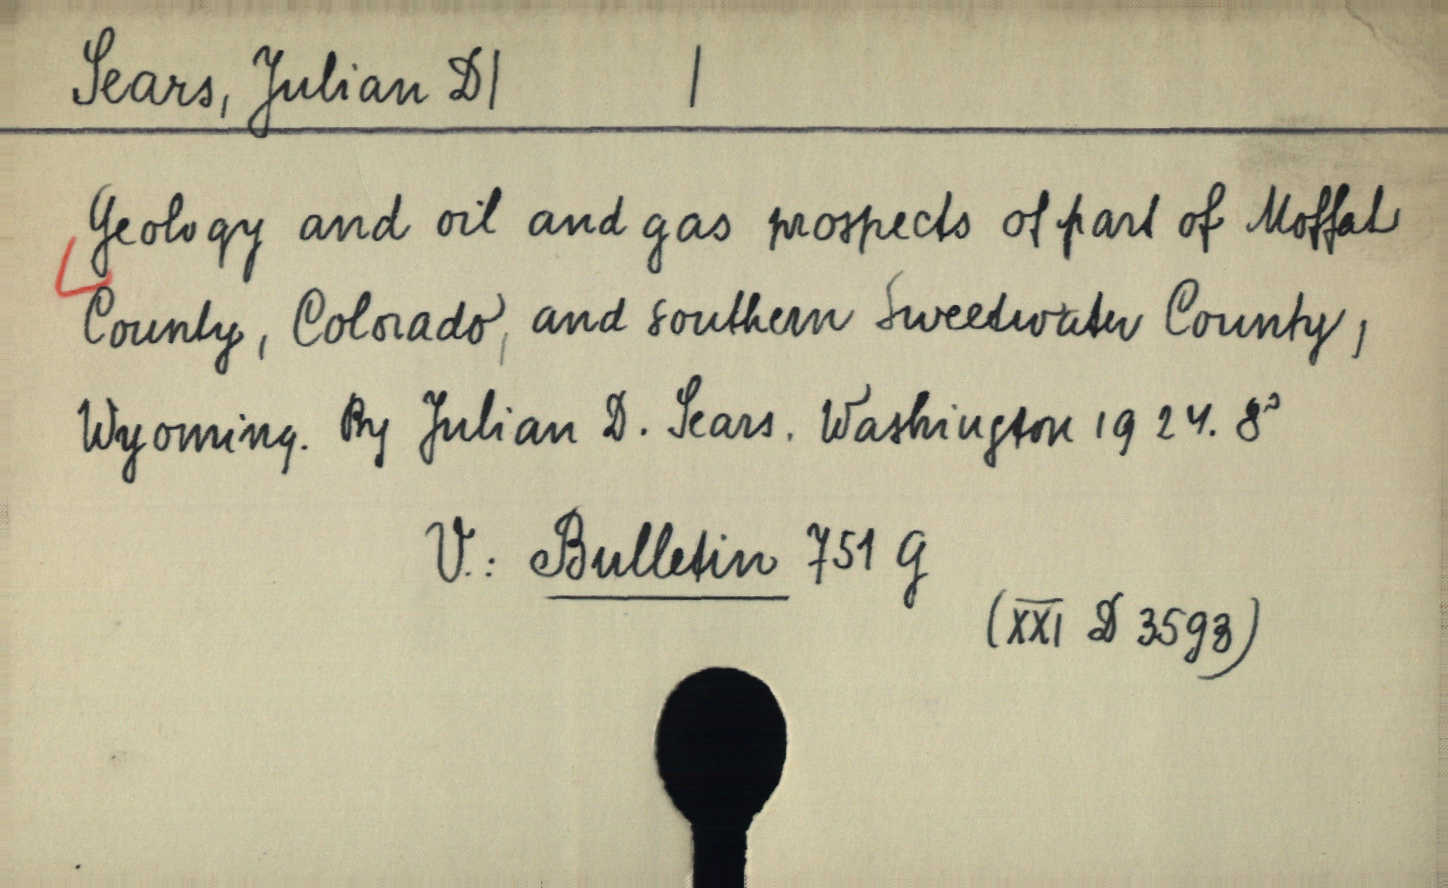 Sears, Julian D| |
Geology and oil and gas prospects of part of Moffat
County, Colorado, and southern Sweetwater County,
Wyoming. By Julian D. Sears. Washington 1924. 8°
V.: Bulletin 751 G
(XXI D 3593)